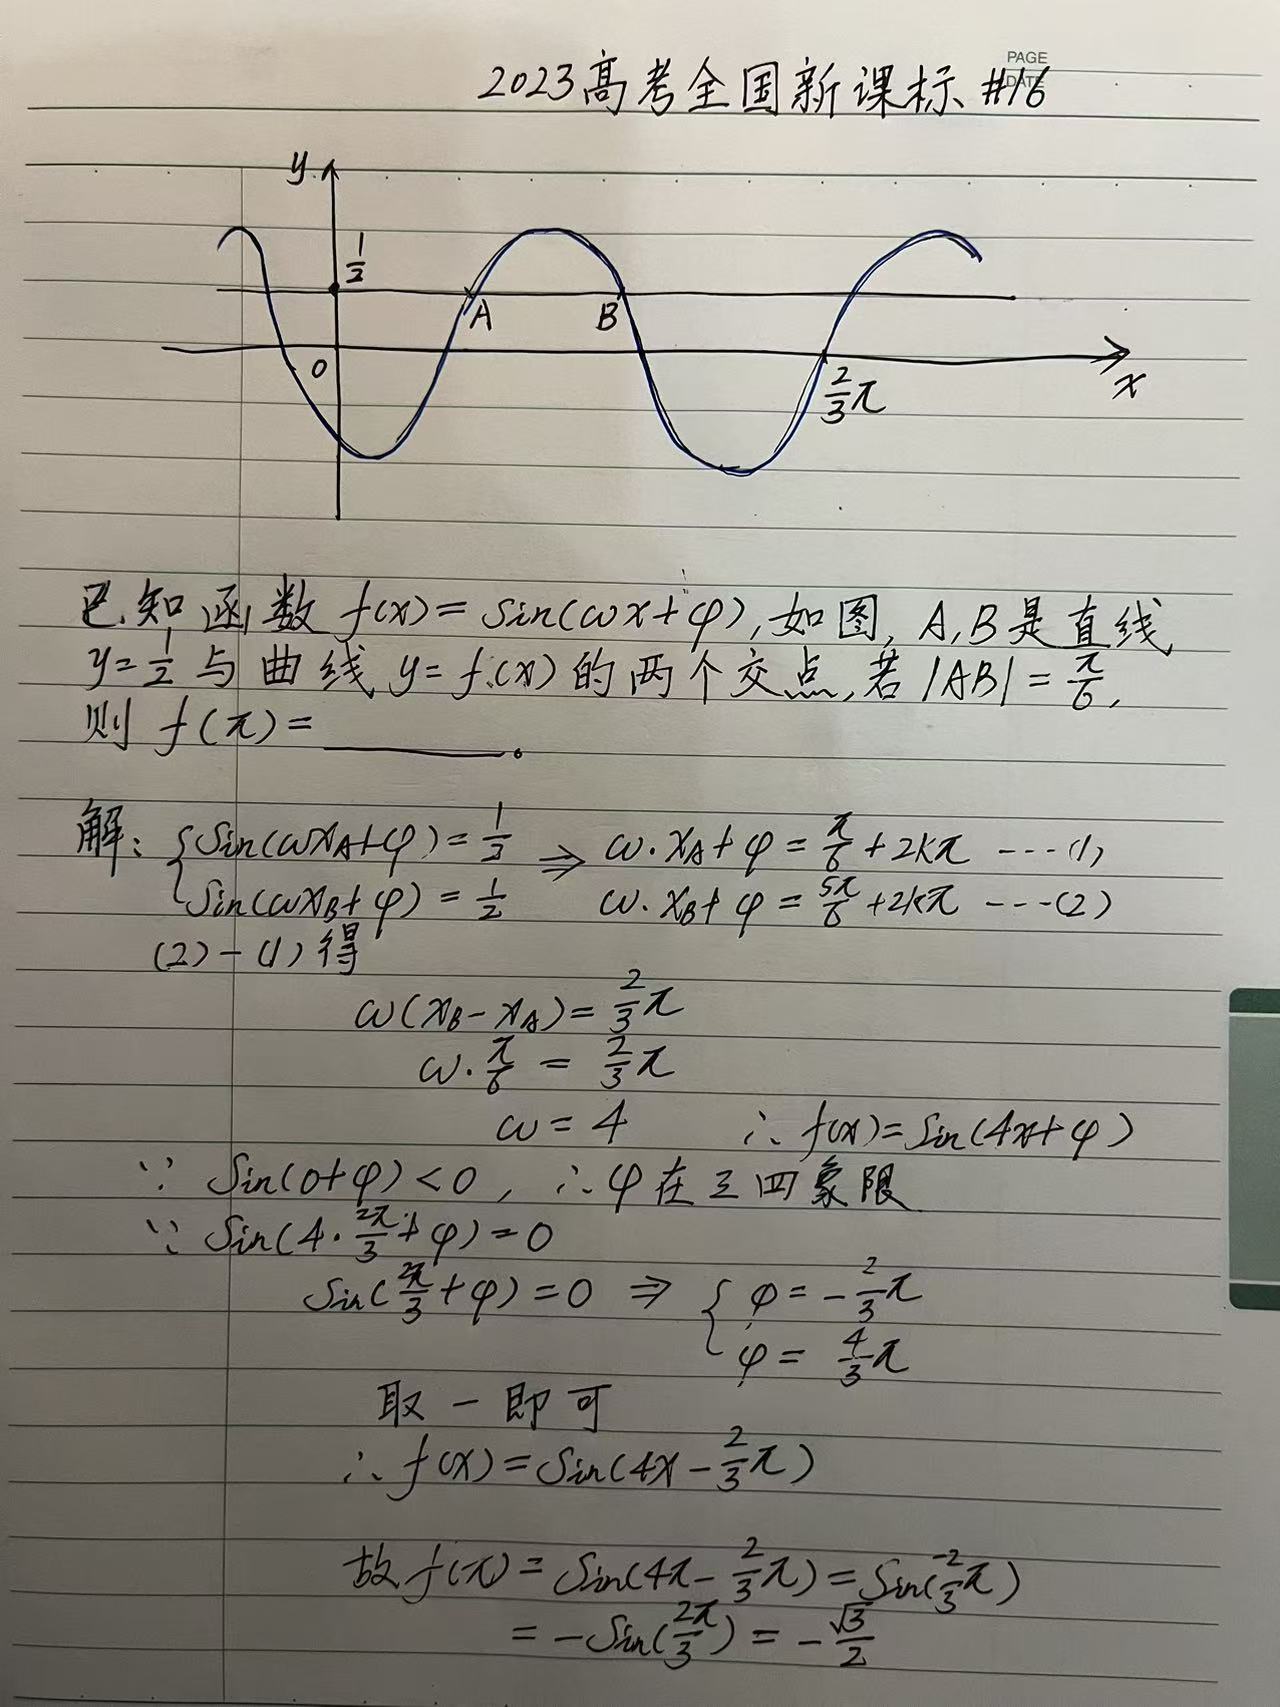 PAGE
DATE
2023高考全国新课标 #16
y
1/2
A B
0
2/3π
x
已知函数 f(x)= sin(ωx+φ),如图, A,B是直线
y=1/2 与曲线 y=f(x)的两个交点,若|AB|=π/6,
则 f(π)= ________。
解: {sin(ωxA+φ)=1/2 ⇒ ω·xA+φ=π/6+2kπ ---(1)
sin(ωxB+φ)=1/2 ω·xB+φ=5π/6+2kπ ---(2)
(2)-(1)得
ω(xB-xA)=2/3π
ω·π/6 = 2/3π
ω=4 ∴ f(x)=sin(4x+φ)
∵ sin(0+φ)<0, ∴φ在三四象限
∵ sin(4·2π/3+φ)=0
sin(2π/3+φ)=0 ⇒ { φ=-2/3π
φ= 4/3π
取一即可
∴ f(x)=sin(4x-2/3π)
故f(π)=sin(4π-2/3π)=sin(-2/3π)
=-sin(2π/3)=-√3/2